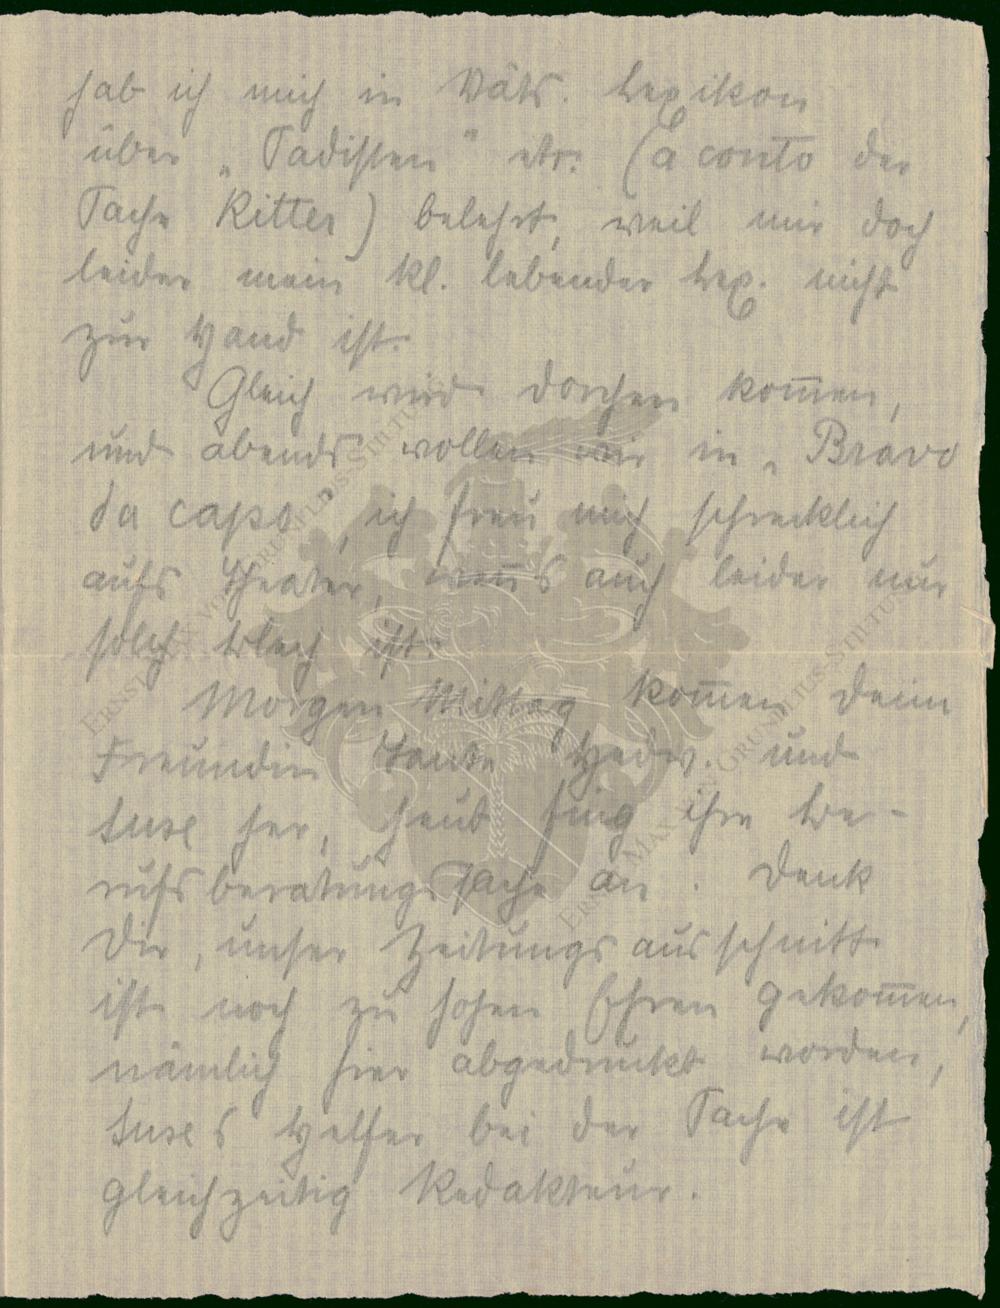 hab ich mich in Väts. Lexikon
über „Sadisten" etc. (à conto der
Sache Ritter) belehrt, weil mir doch
leider mein kl. lebender Lex. nicht
zur Hand ist.
Gleich wird Dorchen kom̄en,
und abends wollen wir in „Bravo
da capo", ich freu mich schrecklich
aufs Theater, wen̄s auch leider nur
solch Blech ist.
Morgen Mittag kom̄en Deine
Freundin Tante Hedw. und
Suse her, heut fing ihre Be-
rufsberatungssache an. Denk
Dir, unser Zeitungsausschnitt
ist noch zu hohen Ehren gekom̄en,
nämlich hier abgedruckt worden,
Suse's Helfer bei der Sache ist
gleichzeitig Redakteur.
Ernst Max von Grunelius-Stiftung
Ernst Max von Grunelius-Stiftung